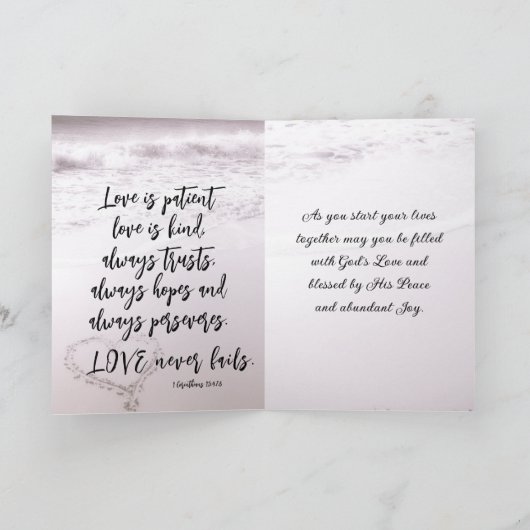 Love is patient
love is kind,
always trusts,
always hopes and
always perseveres.
LOVE never fails.
1 Corinthians 13:4,7,8
As you start your lives
together may you be filled
with God's Love and
blessed by His Peace
and abundant Joy.